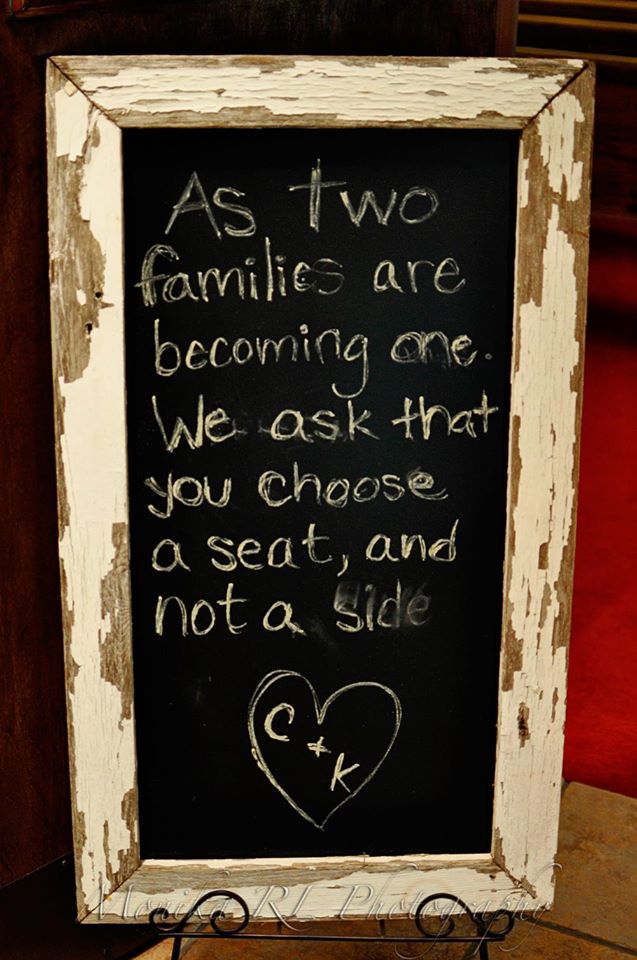 As two
families are
becoming one.
We ask that
you choose
a seat, and
not a side
C + K
Monika RL Photography